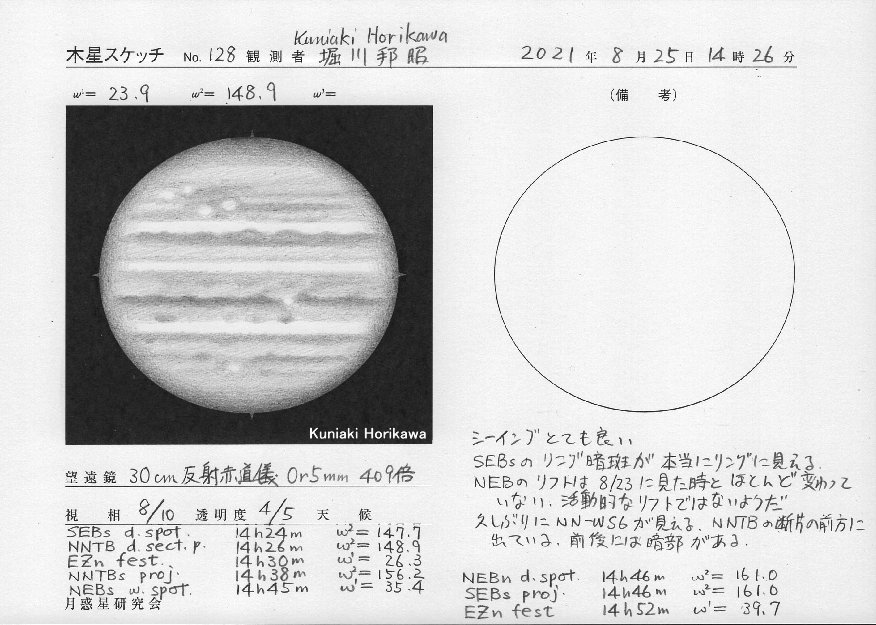 Kuniaki Horikawa
木星スケッチ No. 128 観測者 堀川邦昭 2021年 8月25日 14時26分
ω¹= 23.9 ω²= 148.9 ω³=
(備 考)
Kuniaki Horikawa
シーイングとても良い
SEBsのリング暗斑が本当にリングに見える.
NEBのリフトは8/23に見た時とほとんど変わって
いない. 活動的なリフトではないようだ
久しぶりにNN-WS6が見える. NNTBの断片の前方に
出ている. 前後には暗部がある.
望遠鏡 30cm反射赤道儀 Or5mm 409倍
視 相 8/10 透明度 4/5 天 候
SEBs d. spot. 14h24m ω²= 147.7
NNTB d. sect. p. 14h26m ω²= 148.9
EZn fest. 14h30m ω¹= 26.3
NNTBs proj. 14h38m ω²= 156.2
NEBs w. spot. 14h45m ω¹= 35.4
月惑星研究会
NEBn d. spot. 14h46m ω²= 161.0
SEBs proj. 14h46m ω²= 161.0
EZn fest 14h52m ω¹= 39.7